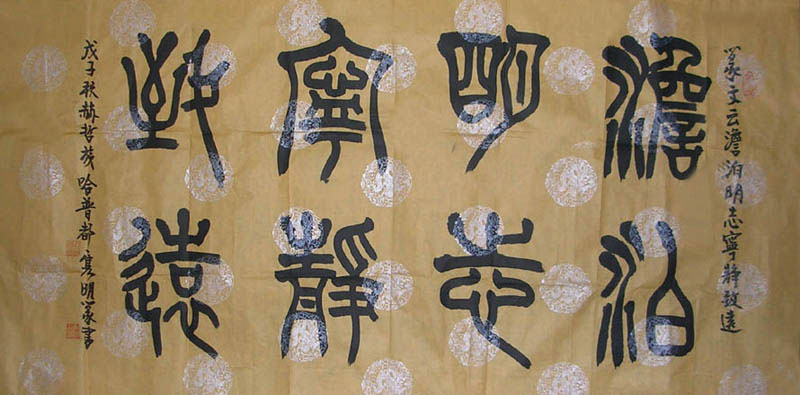 篆文云澹泊明志寧静致遠
澹泊
明志
寧靜
致遠
戊子秋赫哲族哈普都隽明篆書